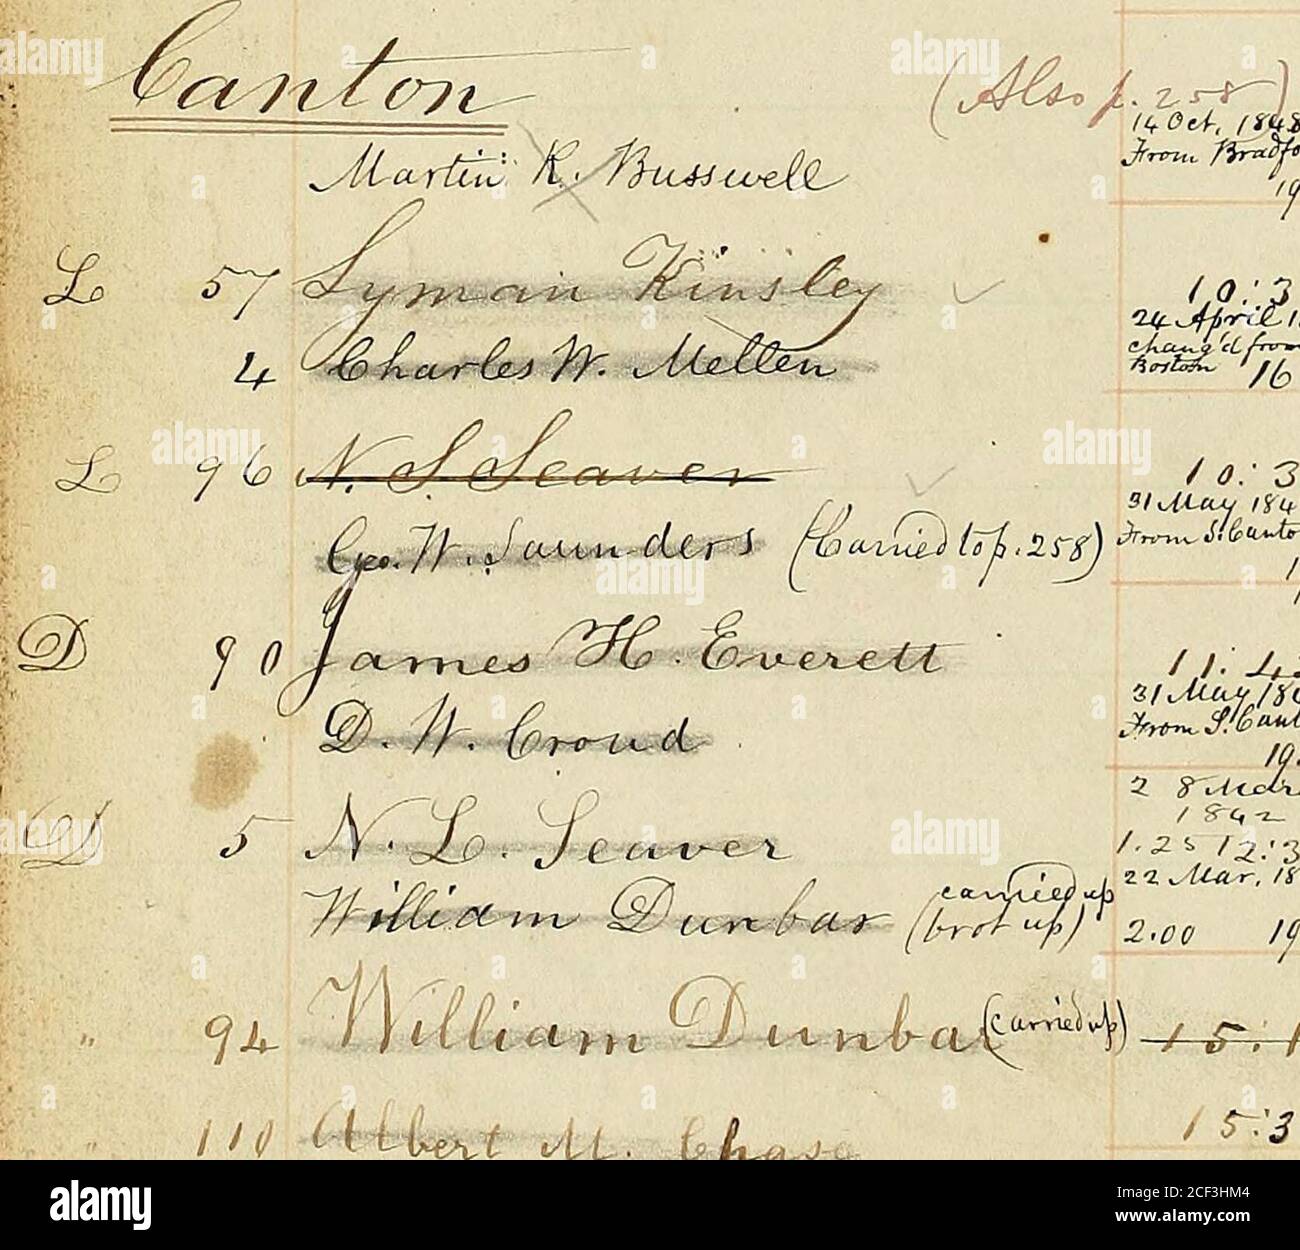 Canton
(Also p. 258)
14 Oct. 1848
Martin R. Busswell From Bradfo
19
L 57 Lyman Kinsley 10:3
24 April 1
4 Charles W. Mellen chang'd from
Boston 16
L 96 N. S. Seaver 10:3
31 May 184
Geo. W. Saunders (Carried to p. 258) From S. Canto
1
D 90 James H. Everett 11:4
31 May 18
D. W. Croud From S. Cant
19
2 8 Mar
1842
D 5 N. L. Seaver 1.25 12:3
22 Mar, 18
William Dunbar carried up
(brot up) 2.00 19
" 94 William Dunbar (carried up) 15:1
" 110 Albert M. Chase 15:3
alamy
Image ID: 2CF3HM4
www.alamy.com